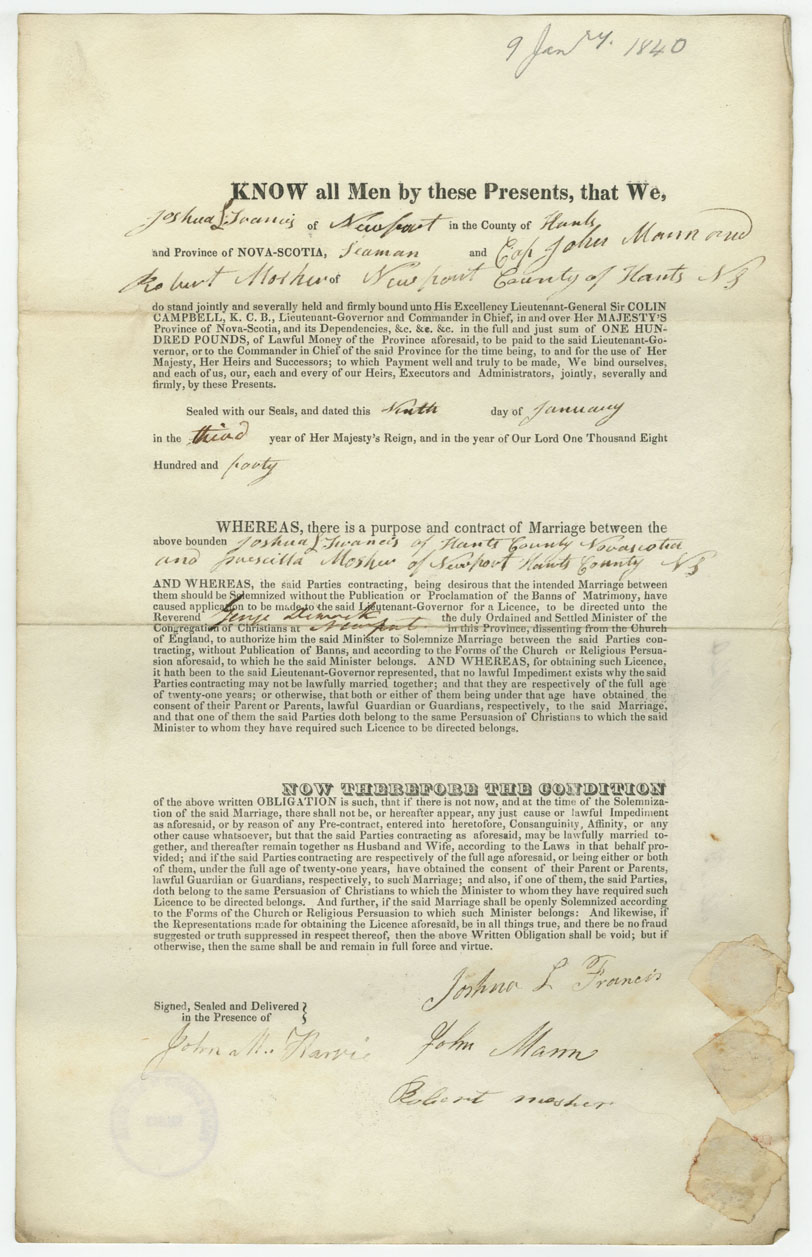 9 Jany. 1840
KNOW all Men by these Presents, that We,
Joshua L Francis of Newport in the County of Hants
and Province of NOVA-SCOTIA, Seaman and Cap John Mann and
Robert Mosher of Newport County of Hants NS
do stand jointly and severally held and firmly bound unto His Excellency Lieutenant-General Sir COLIN
CAMPBELL, K. C. B., Lieutenant-Governor and Commander in Chief, in and over Her MAJESTY'S
Province of Nova-Scotia, and its Dependencies, &c. &c. &c. in the full and just sum of ONE HUN-
DRED POUNDS, of Lawful Money of the Province aforesaid, to be paid to the said Lieutenant-Go-
vernor, or to the Commander in Chief of the said Province for the time being, to and for the use of Her
Majesty, Her Heirs and Successors; to which Payment well and truly to be made, We bind ourselves,
and each of us, our, each and every of our Heirs, Executors and Administrators, jointly, severally and
firmly, by these Presents.
Sealed with our Seals, and dated this Ninth day of January
in the third year of Her Majesty's Reign, and in the year of Our Lord One Thousand Eight
Hundred and forty
WHEREAS, there is a purpose and contract of Marriage between the
above bounden Joshua L Francis of Hants County Novascotia
and prescilla Mosher of Newport Hants County NS
AND WHEREAS, the said Parties contracting, being desirous that the intended Marriage between
them should be Solemnized without the Publication or Proclamation of the Banns of Matrimony, have
caused application to be made to the said Lieutenant-Governor for a Licence, to be directed unto the
Reverend Dimock the duly Ordained and Settled Minister of the
Congregation of Christians at Newport in this Province, dissenting from the Church
of England, to authorize him the said Minister to Solemnize Marriage between the said Parties con-
tracting, without Publication of Banns, and according to the Forms of the Church or Religious Persua-
sion aforesaid, to which he the said Minister belongs. AND WHEREAS, for obtaining such Licence,
it hath been to the said Lieutenant-Governor represented, that no lawful Impediment exists why the said
Parties contracting may not be lawfully married together; and that they are respectively of the full age
of twenty-one years; or otherwise, that both or either of them being under that age have obtained the
consent of their Parent or Parents, lawful Guardian or Guardians, respectively, to the said Marriage,
and that one of them the said Parties doth belong to the same Persuasion of Christians to which the said
Minister to whom they have required such Licence to be directed belongs.
NOW THEREFORE THE CONDITION
of the above written OBLIGATION is such, that if there is not now, and at the time of the Solemniza-
tion of the said Marriage, there shall not be, or hereafter appear, any just cause or lawful Impediment
as aforesaid, or by reason of any Pre-contract, entered into heretofore, Consanguinity, Affinity, or any
other cause whatsoever, but that the said Parties contracting as aforesaid, may be lawfully married to-
gether, and thereafter remain together as Husband and Wife, according to the Laws in that behalf pro-
vided; and if the said Parties contracting are respectively of the full age aforesaid, or being either or both
of them, under the full age of twenty-one years, have obtained the consent of their Parent or Parents,
lawful Guardian or Guardians, respectively, to such Marriage; and also, if one of them, the said Parties,
doth belong to the same Persuasion of Christians to which the Minister to whom they have required such
Licence to be directed belongs. And further, if the said Marriage shall be openly Solemnized according
to the Forms of the Church or Religious Persuasion to which such Minister belongs: And likewise, if
the Representations made for obtaining the Licence aforesaid, be in all things true, and there be no fraud
suggested or truth suppressed in respect thereof, then the above Written Obligation shall be void; but if
otherwise, then the same shall be and remain in full force and virtue.
Joshua L Francis
Signed, Sealed and Delivered
in the Presence of
John Mann
John M. Harvie
Robert mosher